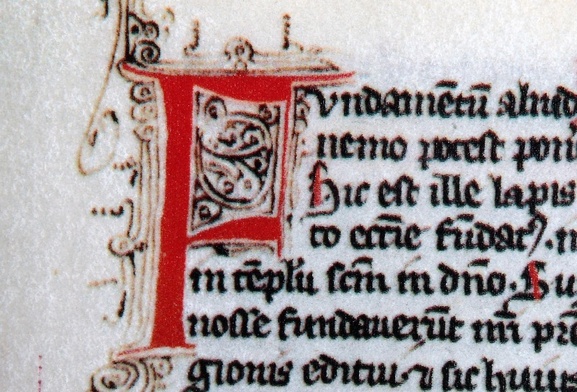 Fundamētū aliud
nemo potest poni
Hic est ille lapis
to eccīe fūdat᷑. 
in tēplū scm̄ in dn̄o. Hu
nosse fundauerūt nr̄i
gionis editui ⁊ sic huius